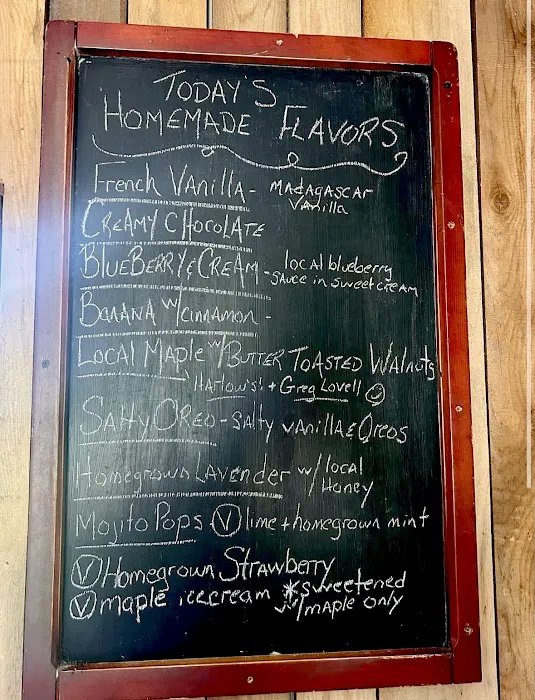 TODAY'S
HOMEMADE FLAVORS
French Vanilla - MADAGASCAR
Vanilla
CREAMY CHOCOLATE
BlueBerry & Cream - local blueberry
sauce in sweet cream
BANANA w/cinnamon -
Local Maple w/ Butter Toasted Walnuts
Harlow's! + Greg Lovell
Salty Oreo - salty vanilla & Oreos
Homegrown Lavender w/ local
Honey
Mojito Pops Ⓥ lime + homegrown mint
Ⓥ Homegrown Strawberry
Ⓥ maple icecream *sweetened
w/maple only